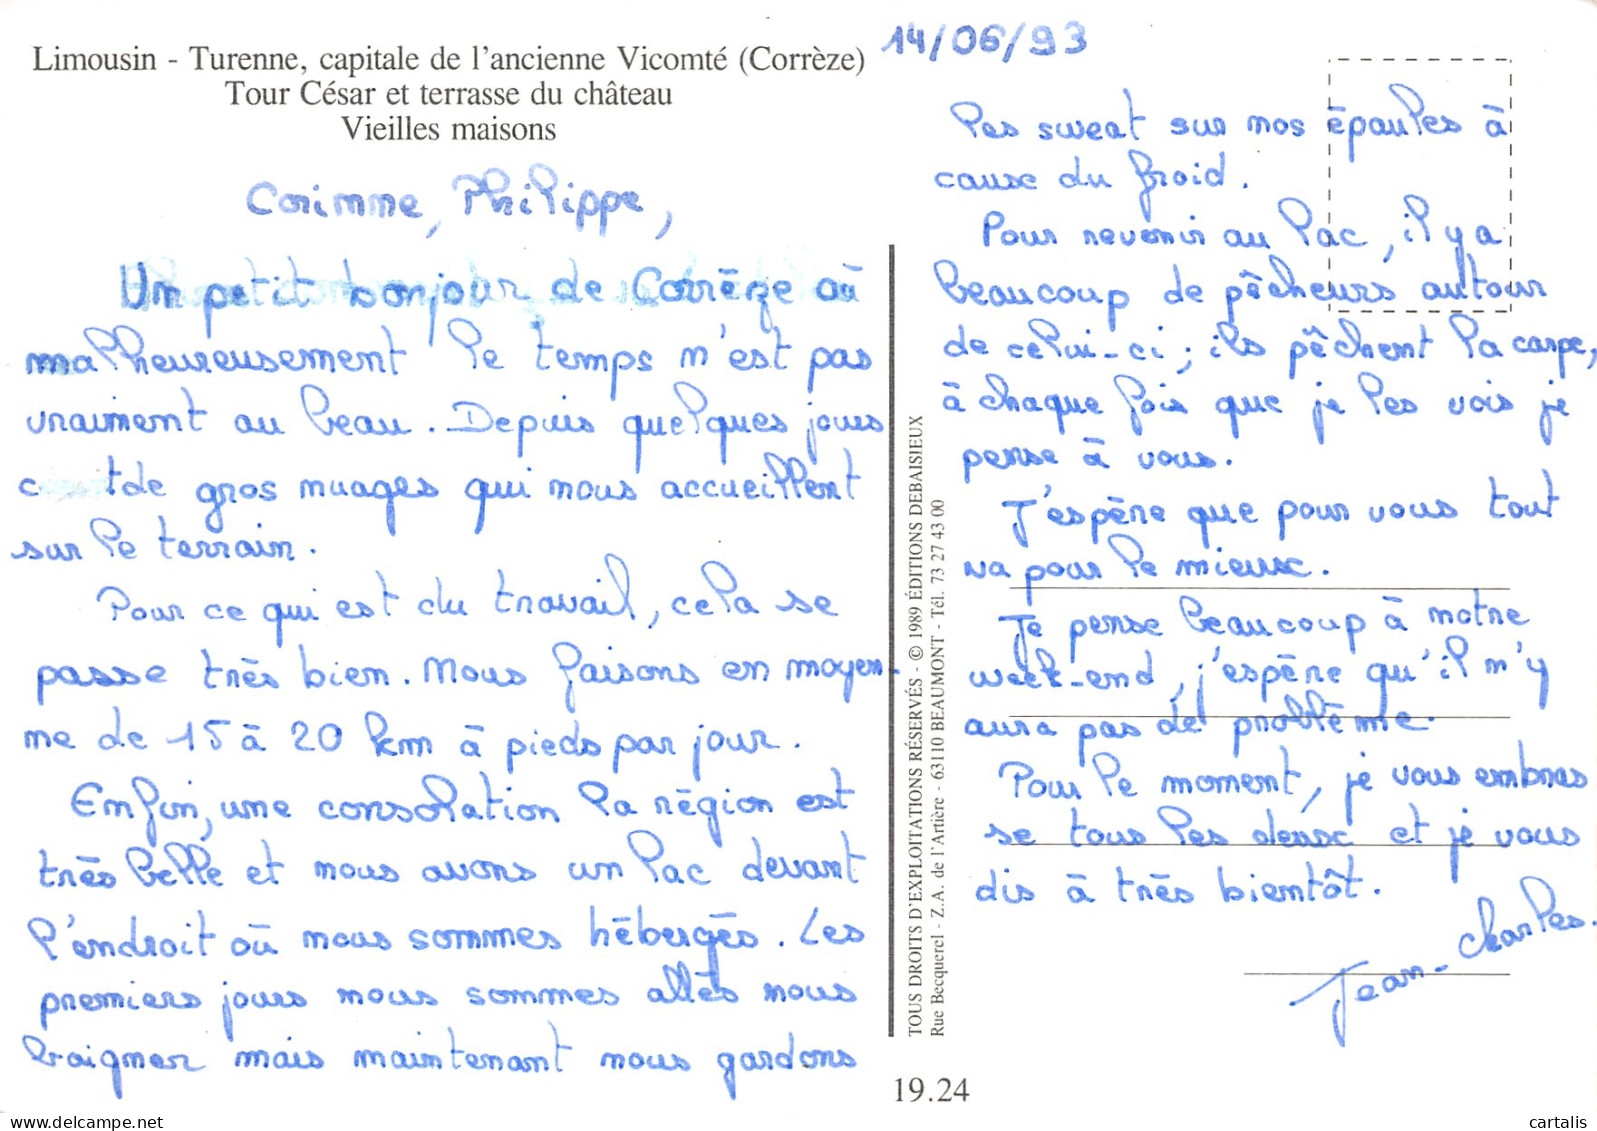 Limousin - Turenne, capitale de l'ancienne Vicomté (Corrèze)
Tour César et terrasse du château
Vieilles maisons
Corinne, Philippe,
Un petit bonjour de Corrèze où
malheureusement le temps n'est pas
vraiment au beau. Depuis quelques jours
c'est de gros nuages qui nous accueillent
sur le terrain.
Pour ce qui est du travail, cela se
passe très bien. Nous faisons en moyen-
ne de 15 à 20 km à pieds par jour.
Enfin, une consolation la région est
très belle et nous avons un lac devant
l'endroit où nous sommes hébergés. Les
premiers jours nous sommes allés nous
baigner mais maintenant nous gardons
14/06/93
les sweat sur nos épaules à
cause du froid.
Pour revenir au lac, il y a
beaucoup de pêcheurs autour
de celui-ci ; ils pêchent la carpe,
à chaque fois que je les vois je
pense à vous.
J'espère que pour vous tout
va pour le mieux.
Je pense beaucoup à notre
week-end, j'espère qu'il n'y
aura pas de problème.
Pour le moment, je vous embras
se tous les deux et je vous
dis à très bientôt.
Jean-Charles.
TOUS DROITS D'EXPLOITATIONS RÉSERVÉS - © 1989 ÉDITIONS DEBAISIEUX
Rue Becquerel - Z.A. de l'Artière - 63110 BEAUMONT - Tél. 73 27 43 00
19.24
cartalis